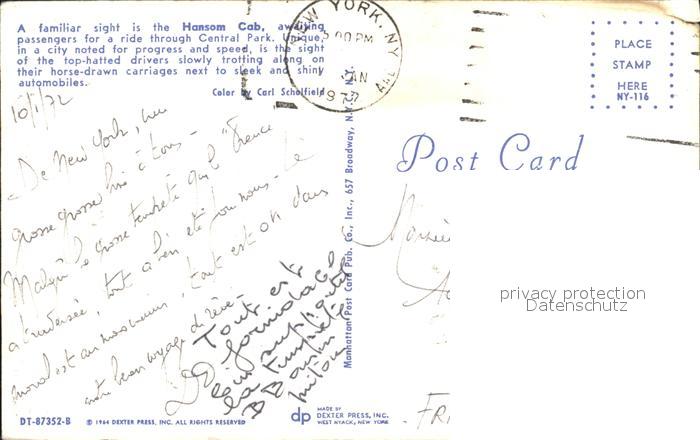 A familiar sight is the Hansom Cab, awaiting
passengers for a ride through Central Park. Unique,
in a city noted for progress and speed, is the sight
of the top-hatted drivers slowly trotting along on
their horse-drawn carriages next to sleek and shiny
automobiles.
Color by Carl Scholfield
NEW YORK, N.Y.
5 00 PM
JAN
PLACE
STAMP
HERE
NY-116
Post Card
10/1/72
De New York, une
grosse grosse bise à tous -
Malgré la grosse tempête que "France
a traversée, tout a bien été pour nous - Le
moral est au maximum, tout est OK dans
notre beau voyage de rêve -
Tout est
formidable
la tempête
Manhattan Post Card Pub. Co., Inc., 657 Broadway, N.Y.C., N.Y.
privacy protection
Datenschutz
DT-87352-B
© 1964 DEXTER PRESS, INC. ALL RIGHTS RESERVED
dp
MADE BY
DEXTER PRESS, INC.
WEST NYACK, NEW YORK